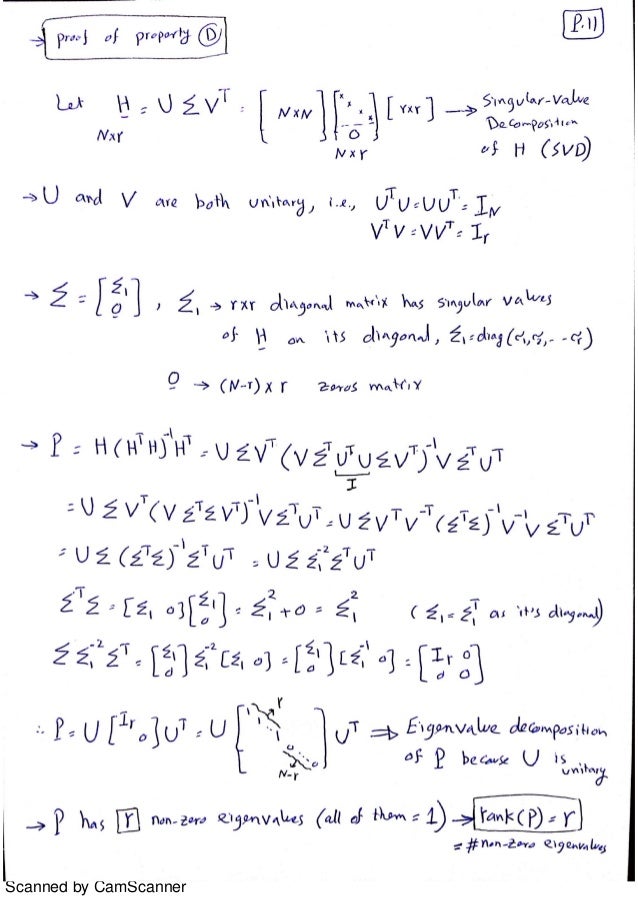 P.11
→ Proof of property D
Let H = U Σ V^T = [ N×N ] [ 0 ] [ r×r ] → Singular-Value
N×r N×r Decomposition
of H (SVD)
→ U and V are both unitary, i.e., U^T U = U U^T = I_N
V^T V = V V^T = I_r
→ Σ = [Σ₁ 0], Σ₁ → r×r diagonal matrix has singular values
of H on its diagonal, Σ₁ = diag(σ₁, σ₂, -- σ_r)
0 → (N-r) × r zeros matrix
→ P = H (H^T H)^-1 H^T = U Σ V^T (V Σ^T U^T U Σ V^T)^-1 V Σ^T U^T
I
= U Σ V^T (V Σ^T Σ V^T)^-1 V Σ^T U^T = U Σ V^T V^-T (Σ^T Σ)^-1 V^-1 V Σ^T U^T
= U Σ (Σ^T Σ)^-1 Σ^T U^T = U Σ Σ₁^-2 Σ^T U^T
Σ^T Σ = [Σ₁ 0] [Σ₁ 0] = Σ₁^2 + 0 = Σ₁^2 (Σ₁ = Σ₁^T as it's diagonal)
Σ Σ₁^-2 Σ^T = [Σ₁ 0] Σ₁^-2 [Σ₁ 0] = [Σ₁ 0] [Σ₁^-1 0] = [I_r 0 0 0]
∴ P = U [I_r 0] U^T = U [ r N-r ] U^T ⇒ Eigenvalue decomposition
of P because U is unitary
→ P has r non-zero eigenvalues (all of them = 1) → rank(P) = r
= # non-zero eigenvalues
Scanned by CamScanner